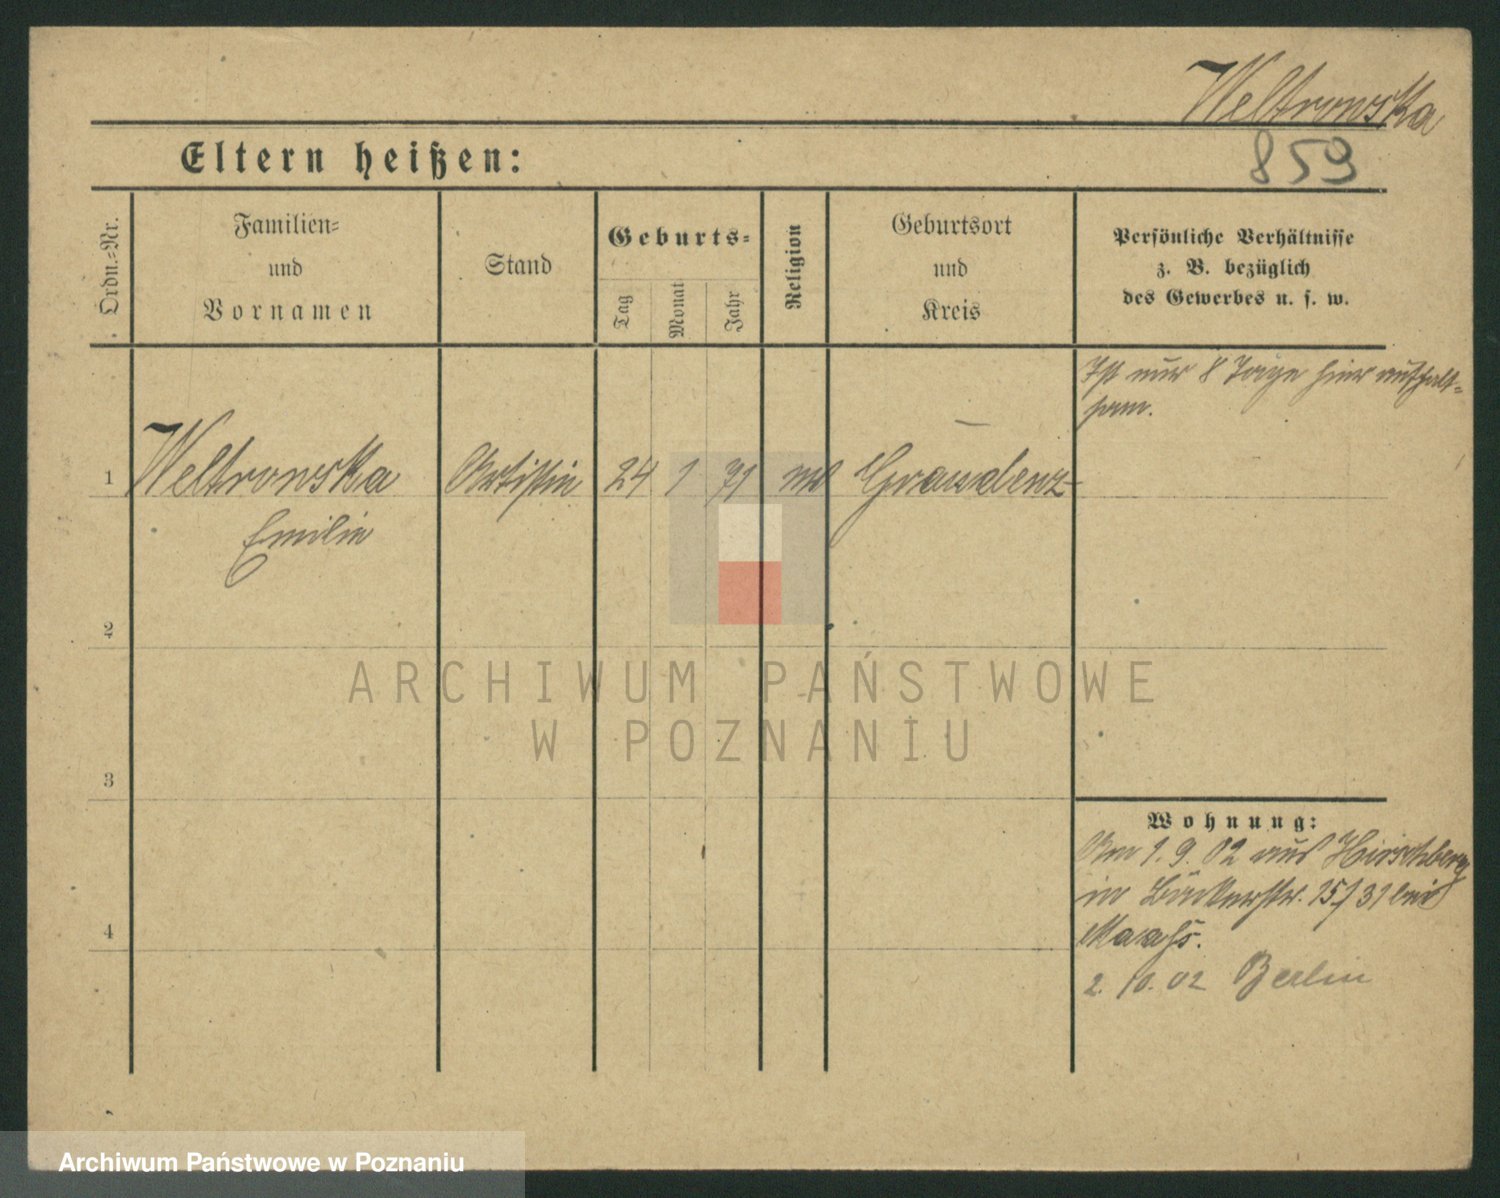 Weltrowska
859
Eltern heißen:
Ordn.-Nr.
Familien-
und
Vornamen
Stand
Geburts-
Tag
Monat
Jahr
Religion
Geburtsort
und
Kreis
Persönliche Verhältnisse
z. B. bezüglich
des Gewerbes u. s. w.
Ist nur 8 Tage hier aufhalt-
sam.
1 Weltrowska Artistin 24 1 71 Graudenz
Emilie
2
3
4
Wohnung:
Am 1. 9. 02 aus Hirschberg
in Bäckerstr. 15/31 bei
Maahs.
2. 10. 02 Berlin
ARCHIWUM PAŃSTWOWE
W POZNANIU
Archiwum Państwowe w Poznaniu